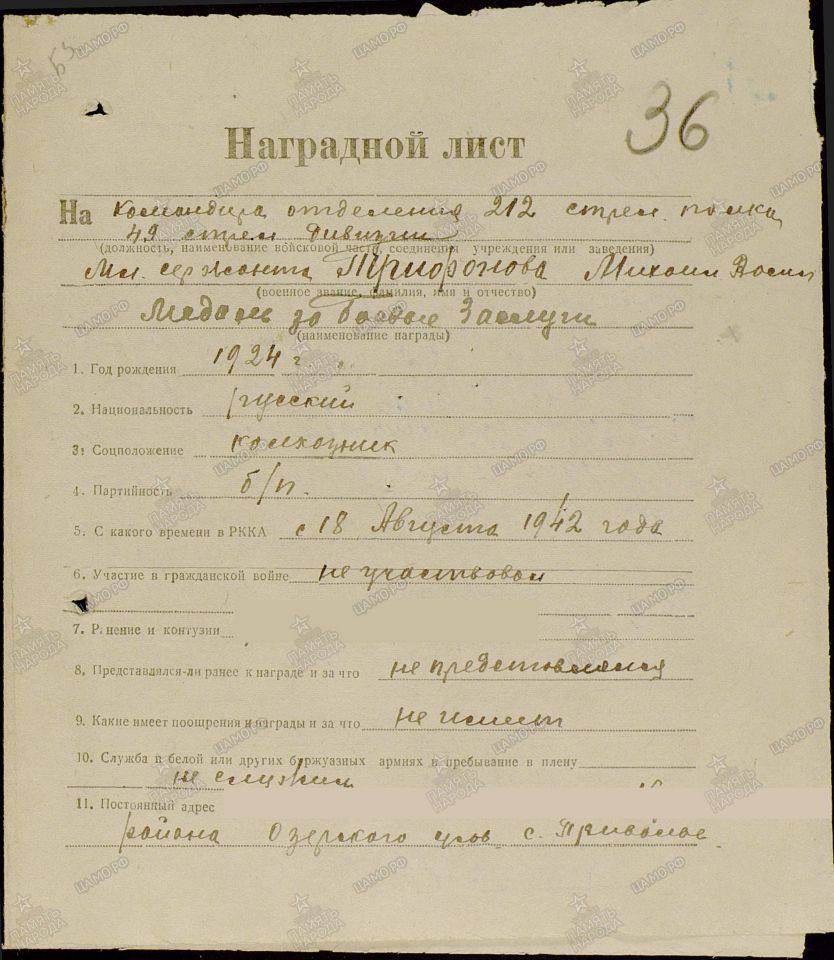 36
Наградной лист
На Командира отделения 212 стрел. полка
49 стрел дивизии
(должность, наименование войсковой части, соединения учреждения или заведения)
Мл. сержанта Михаил
(военное звание, фамилия, имя и отчество)
Медаль за боевые Заслуги
(наименование награды)
1. Год рождения 1924 г.
2. Национальность русский
3. Соцположение колхозник
4. Партийность б/п.
5. С какого времени в РККА с 18 Августа 1942 года
6. Участие в гражданской войне не участвовал
7. Ранение и контузии
8. Представлялся-ли ранее к награде и за что не представлялся
9. Какие имеет поощрения и награды и за что не имеет
10. Служба в белой или других буржуазных армиях и пребывание в плену
не служил
11. Постоянный адрес
района Озерского с.